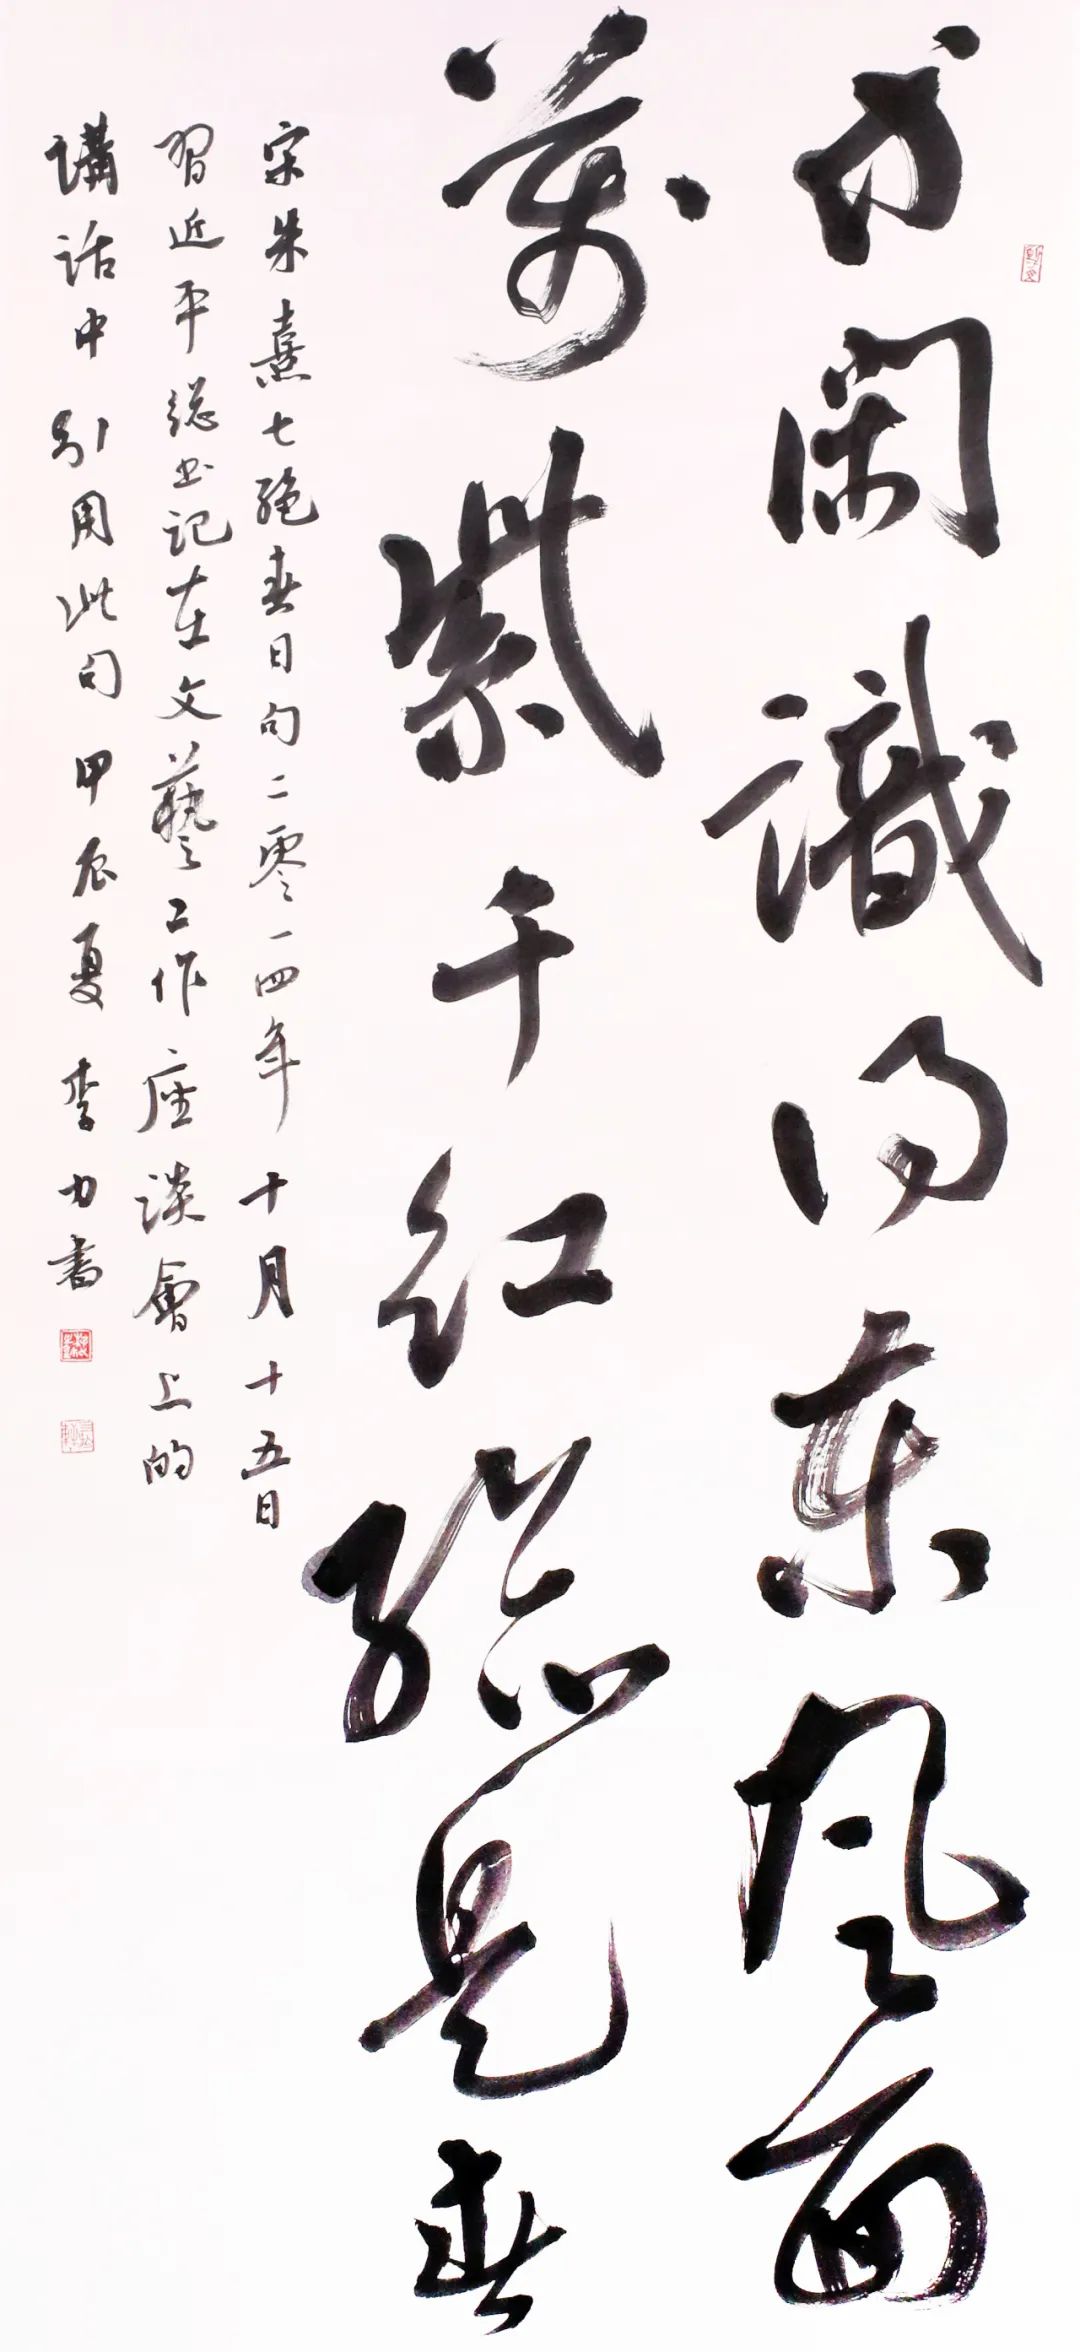 方閑識得東風面
萬紫千紅總是春
宋朱熹七絶春日句二零一四年十月十五日
習近平總书記在文藝工作座談會上的
講話中引用此句甲辰夏李力書